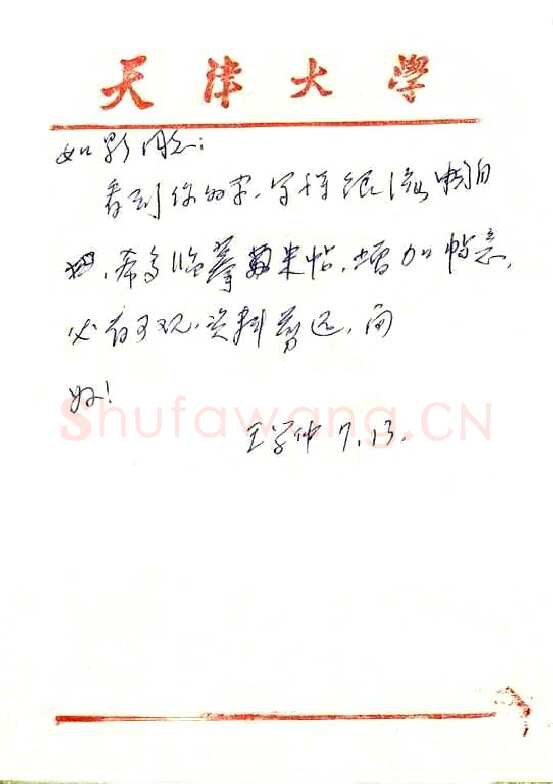 天津大學
如影同志：
看到你的字，写得很流畅自
如，希多临摹米帖，增加帖意，
必有可观，资料剪迟，问
好！
Shufawang.CN
王学仲 7.13.